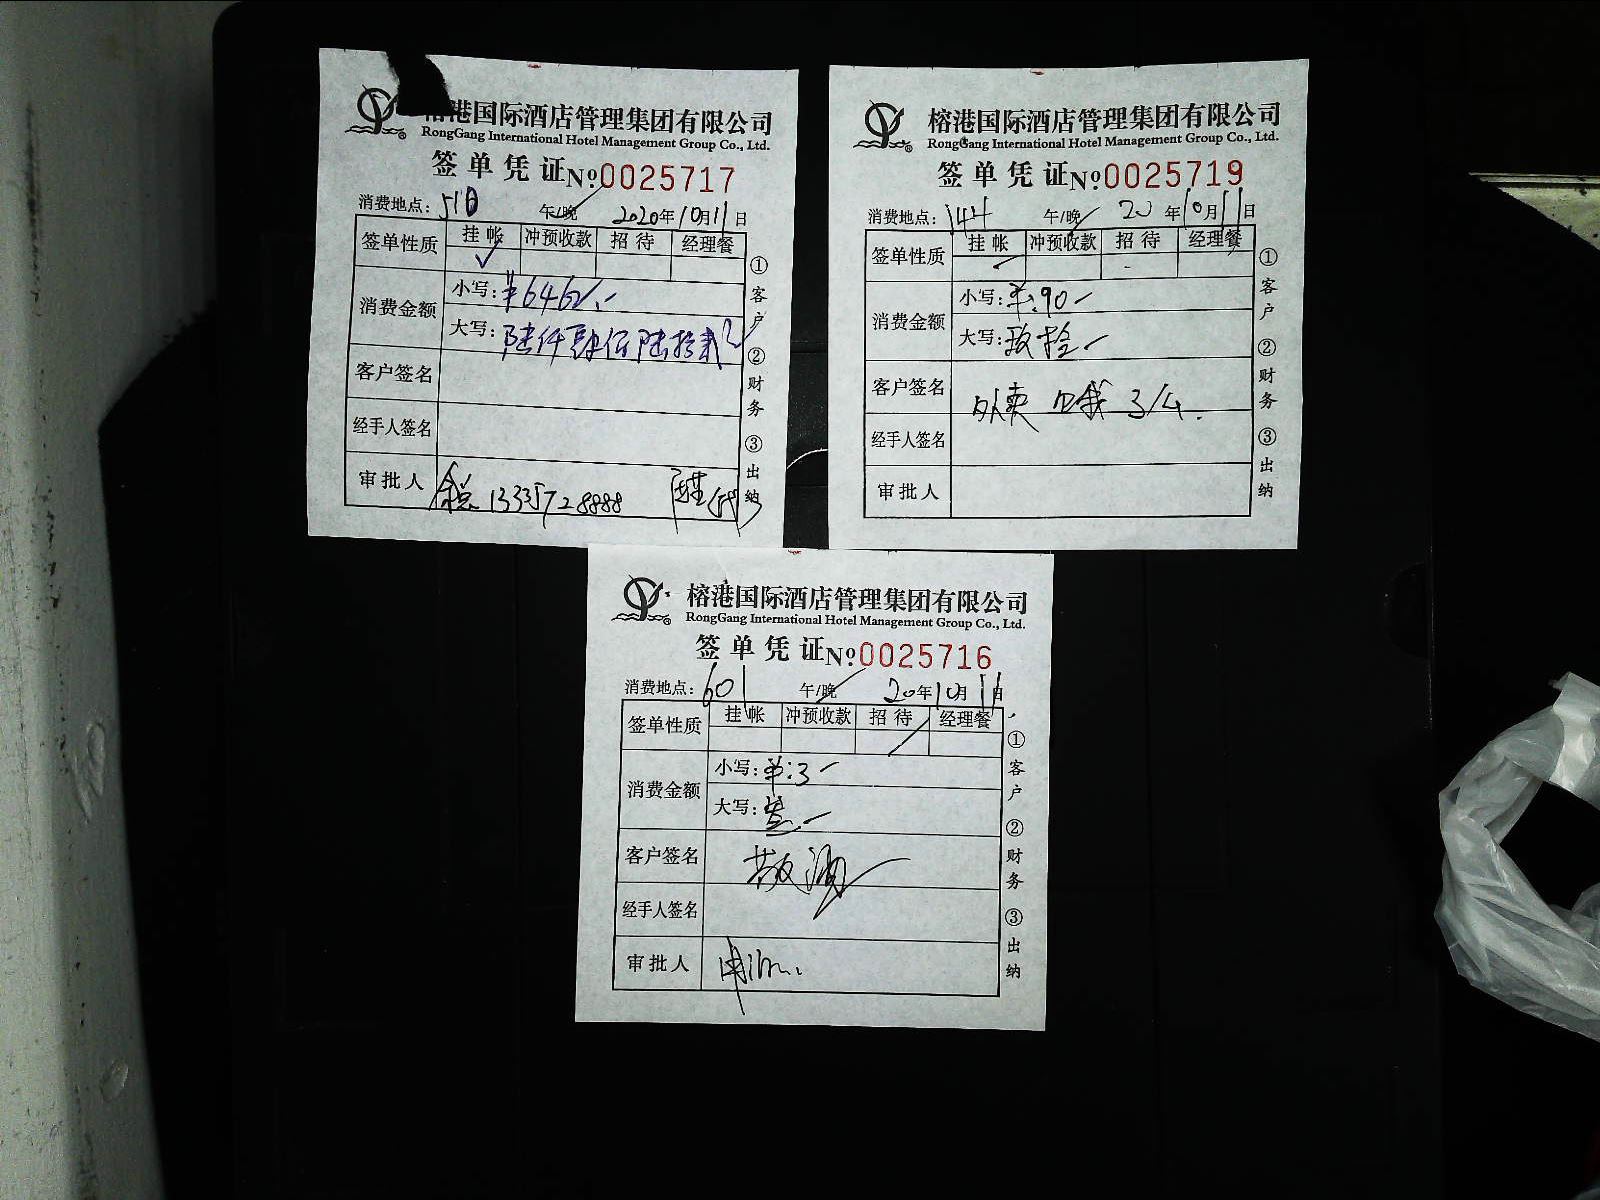 榕港国际酒店管理集团有限公司
RongGang International Hotel Management Group Co., Ltd.
签单凭证 №0025717
消费地点： 午/晚 2020年10月11日
签单性质 挂帐 冲预收款 招待 经理餐
✓
消费金额 小写：¥6462.-
大写：陆仟肆佰陆拾贰
客户签名
经手人签名
审批人 13357728888
①客户 ②财务 ③出纳
榕港国际酒店管理集团有限公司
RongGang International Hotel Management Group Co., Ltd.
签单凭证 №0025719
消费地点：144 午/晚 20年10月11日
签单性质 挂帐 冲预收款 招待 经理餐
消费金额 小写：¥:90-
大写：玖拾-
客户签名 外卖 3/4.
经手人签名
审批人
①客户 ②财务 ③出纳
榕港国际酒店管理集团有限公司
RongGang International Hotel Management Group Co., Ltd.
签单凭证 №0025716
消费地点：601 午/晚 20年10月11日
签单性质 挂帐 冲预收款 招待 经理餐
消费金额 小写：¥:3-
大写：叁-
客户签名
经手人签名
审批人
①客户 ②财务 ③出纳